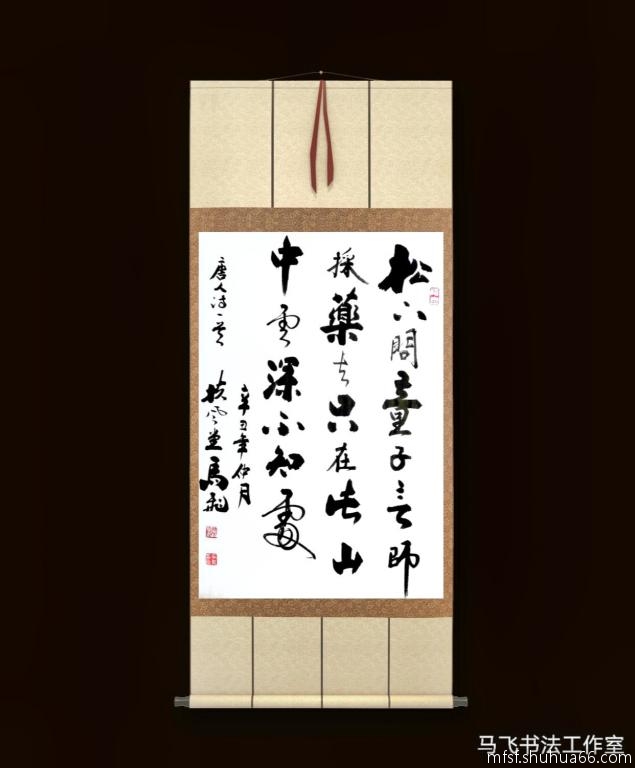 松下問童子言師
採藥去只在此山
中雲深不知處
辛丑年仲月
唐人诗一首 扶風堂馬飛
马飞书法工作室
mfsf.shuhua66.com